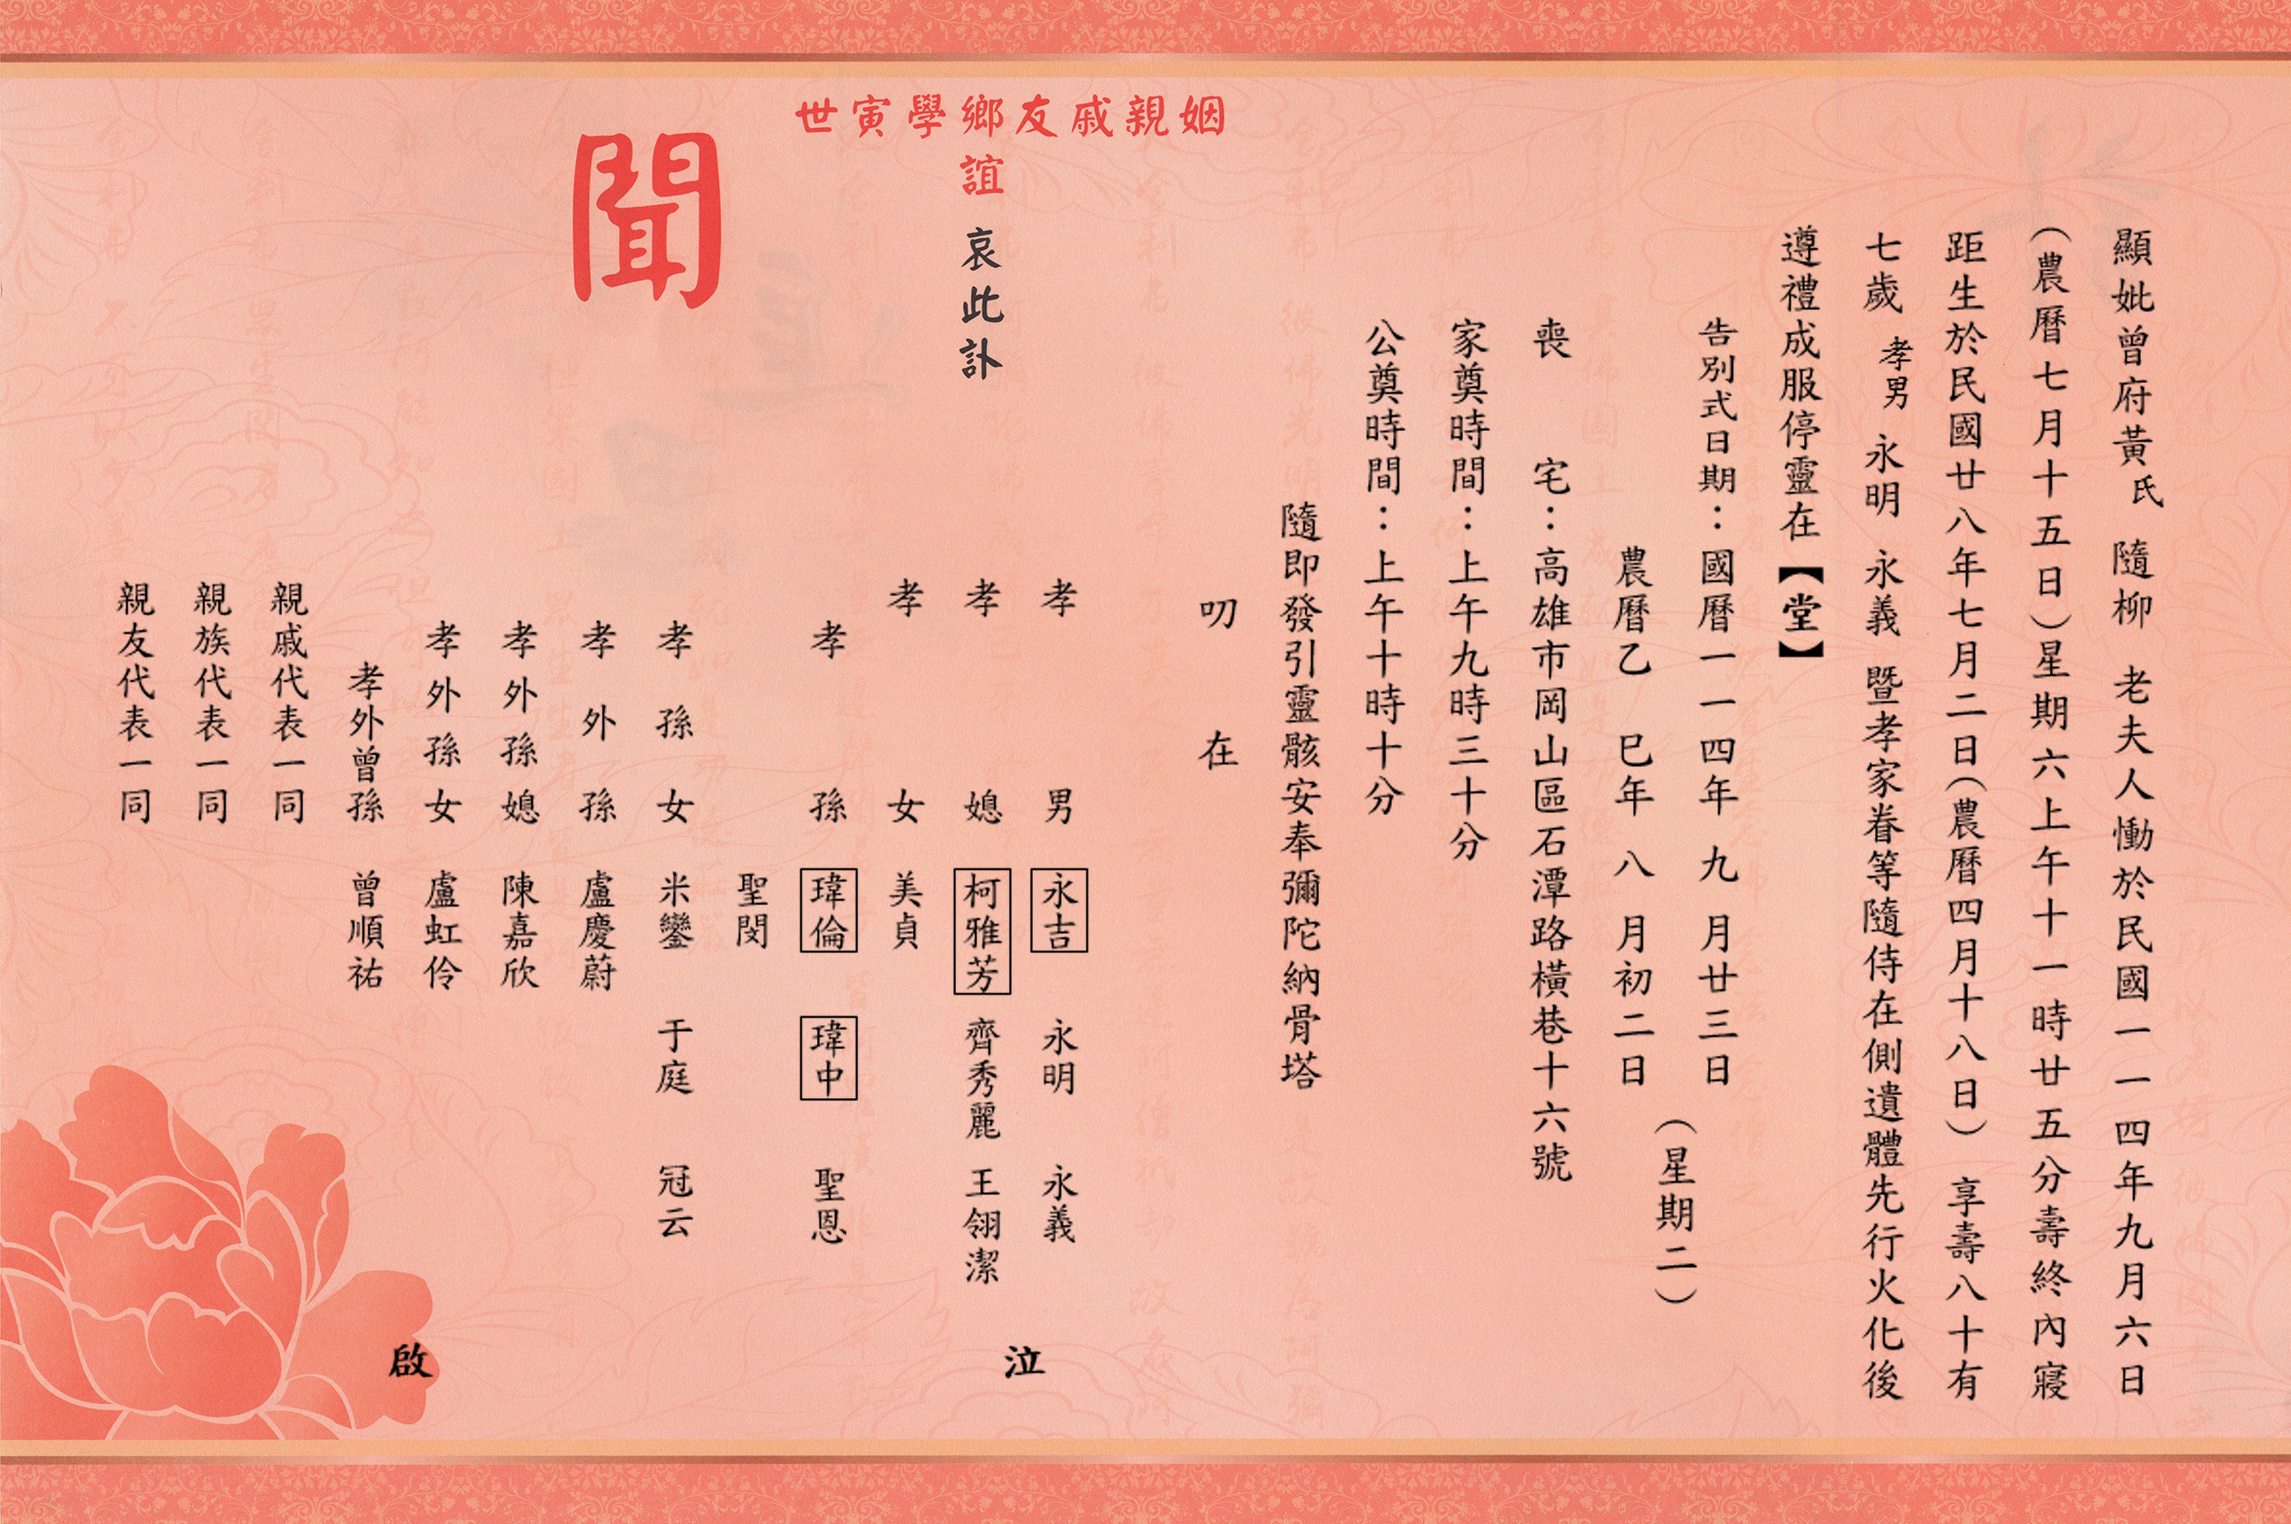 顯妣曾府黃氏 隨柳 老夫人慟於民國一一四年九月六日
(農曆七月十五日)星期六上午十一時廿五分壽終內寢
距生於民國廿八年七月二日(農曆四月十八日) 享壽八十有
七歲 孝男 永明 永義 暨孝家眷等隨侍在側遺體先行火化後
遵禮成服停靈在【堂】
告別式日期：國曆一一四年 九 月廿三日
農曆乙 巳年 八 月初二日
(星期二)
喪 宅：高雄市岡山區石潭路橫巷十六號
家奠時間：上午九時三十分
公奠時間：上午十時十分
隨即發引靈骸安奉彌陀納骨塔
叨 在
姻親戚友鄉學寅世
誼 哀此訃
聞
孝 男 永吉 永明 永義
孝 媳 柯雅芳 齊秀麗 王翎潔
泣
孝 女 美貞
孝 孫 瑋倫 瑋中 聖恩
聖閔
孝 孫 女 米鑾 于庭 冠云
孝 外 孫 盧慶蔚
孝 外 孫 媳 陳嘉欣
孝 外 孫 女 盧虹伶
孝外曾孫 曾順祐
親戚代表一同
親族代表一同
親友代表一同
啟